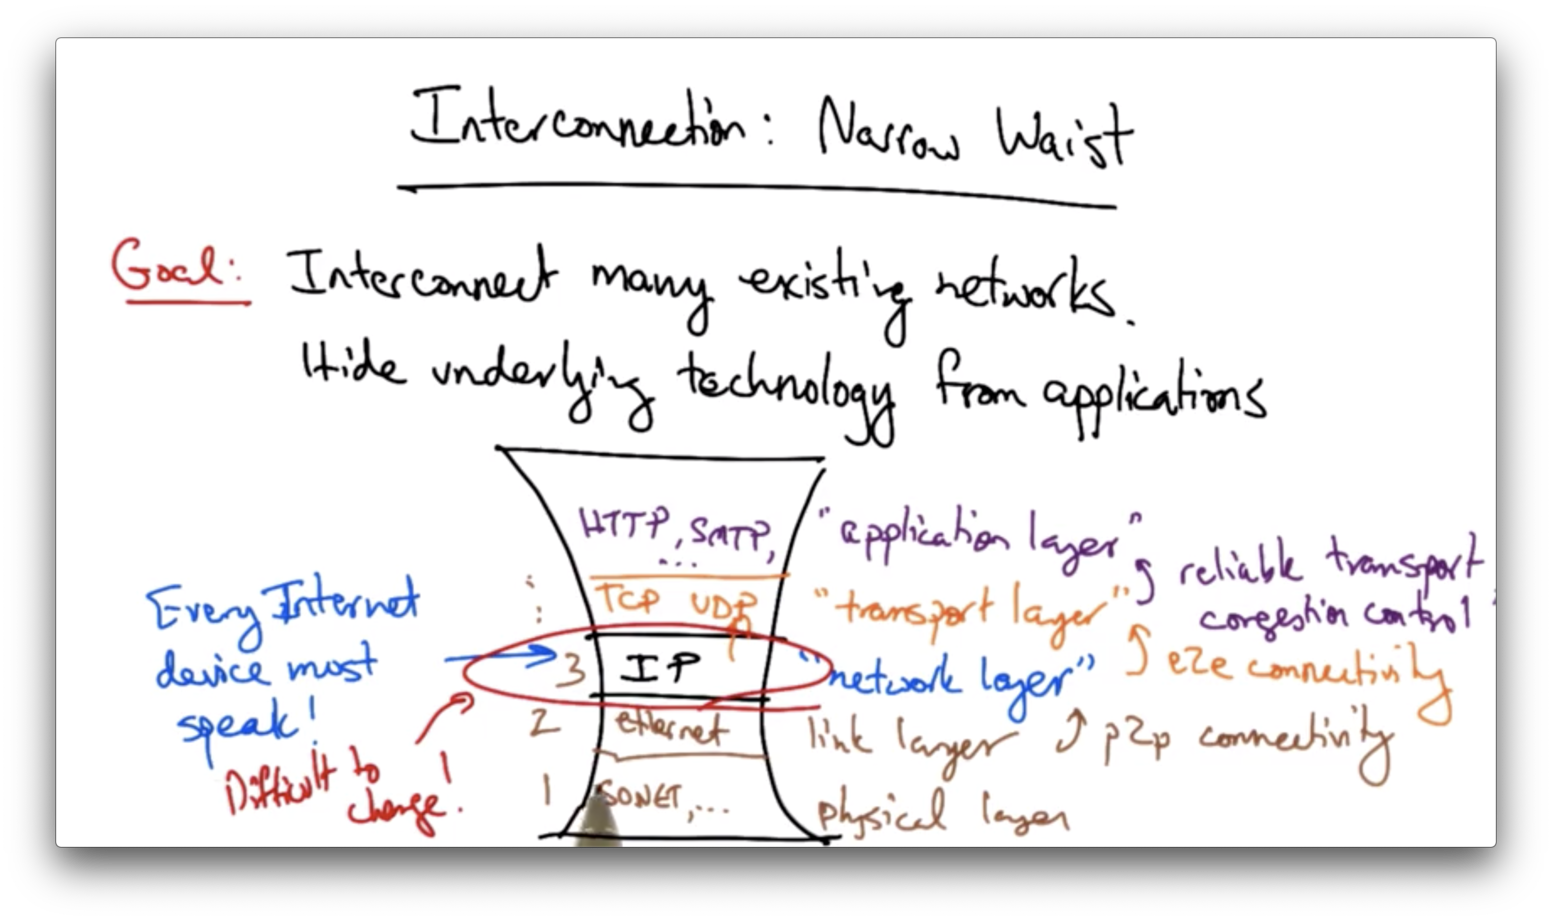 Interconnection: Narrow Waist
Goal: Interconnect many existing networks.
Hide underlying technology from applications
HTTP, SMTP, ... "application layer"
reliable transport
congestion control
TCP UDP "transport layer"
e2e connectivity
Every Internet
device most
speak!
3 IP "network layer"
p2p connectivity
2 ethernet link layer
Difficult to
change!
1 SONET,... physical layer